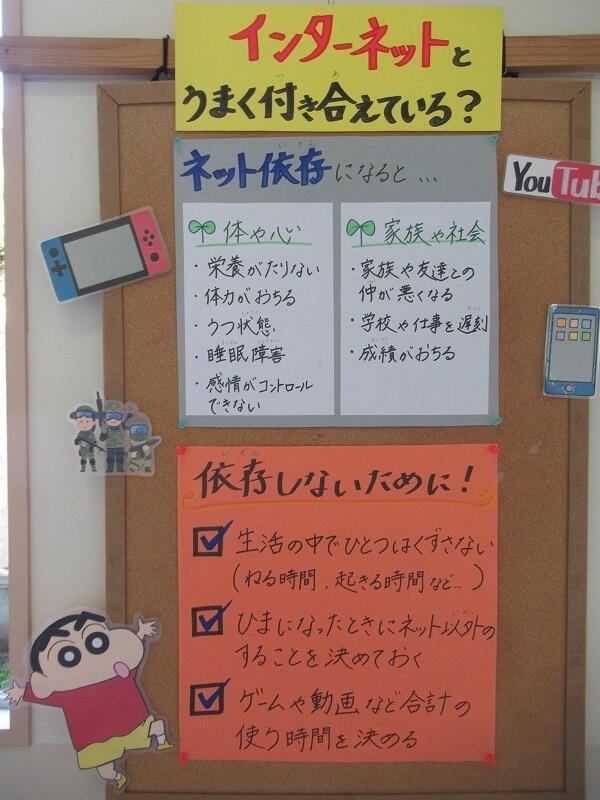 インターネットと
うまく付き合えている?
ネット依存になると…
体や心
・栄養がたりない
・体力がおちる
・うつ状態
・睡眠障害
・感情がコントロール
できない
家族や社会
・家族や友達との
仲が悪くなる
・学校や仕事を遅刻
・成績がおちる
YouTub
依存しないために!
生活の中でひとつはくずさない
(ねる時間、起きる時間など…)
ひまになったときにネット以外の
することを決めておく
ゲームや動画など合計の
使う時間を決める